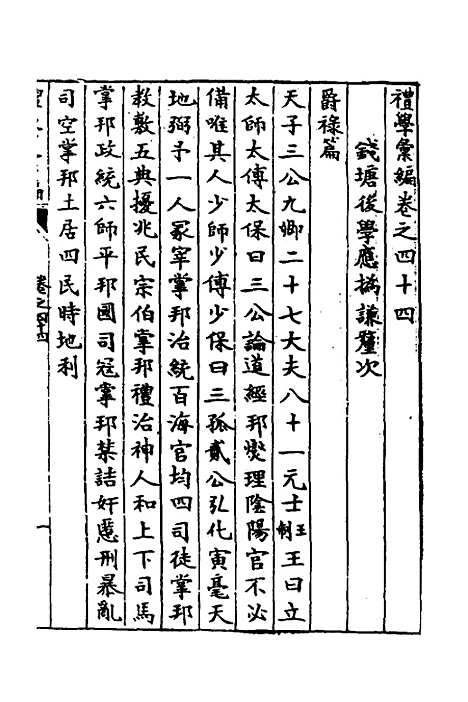 禮學彙編卷之四十四
錢塘後學應撝謙釐次
爵祿篇
天子三公九卿二十七大夫八十一元士王制王曰立
太師太傅太保曰三公論道經邦燮理陰陽官不必
備唯其人少師少傅少保曰三孤貳公弘化寅亮天
地弼予一人冢宰掌邦治統百海官均四司徒掌邦
教敷五典擾兆民宗伯掌邦禮治神人和上下司馬
掌邦政統六師平邦國司冦掌邦禁詰奸慝刑暴亂
司空掌邦土居四民時地利
卷之四十四
一